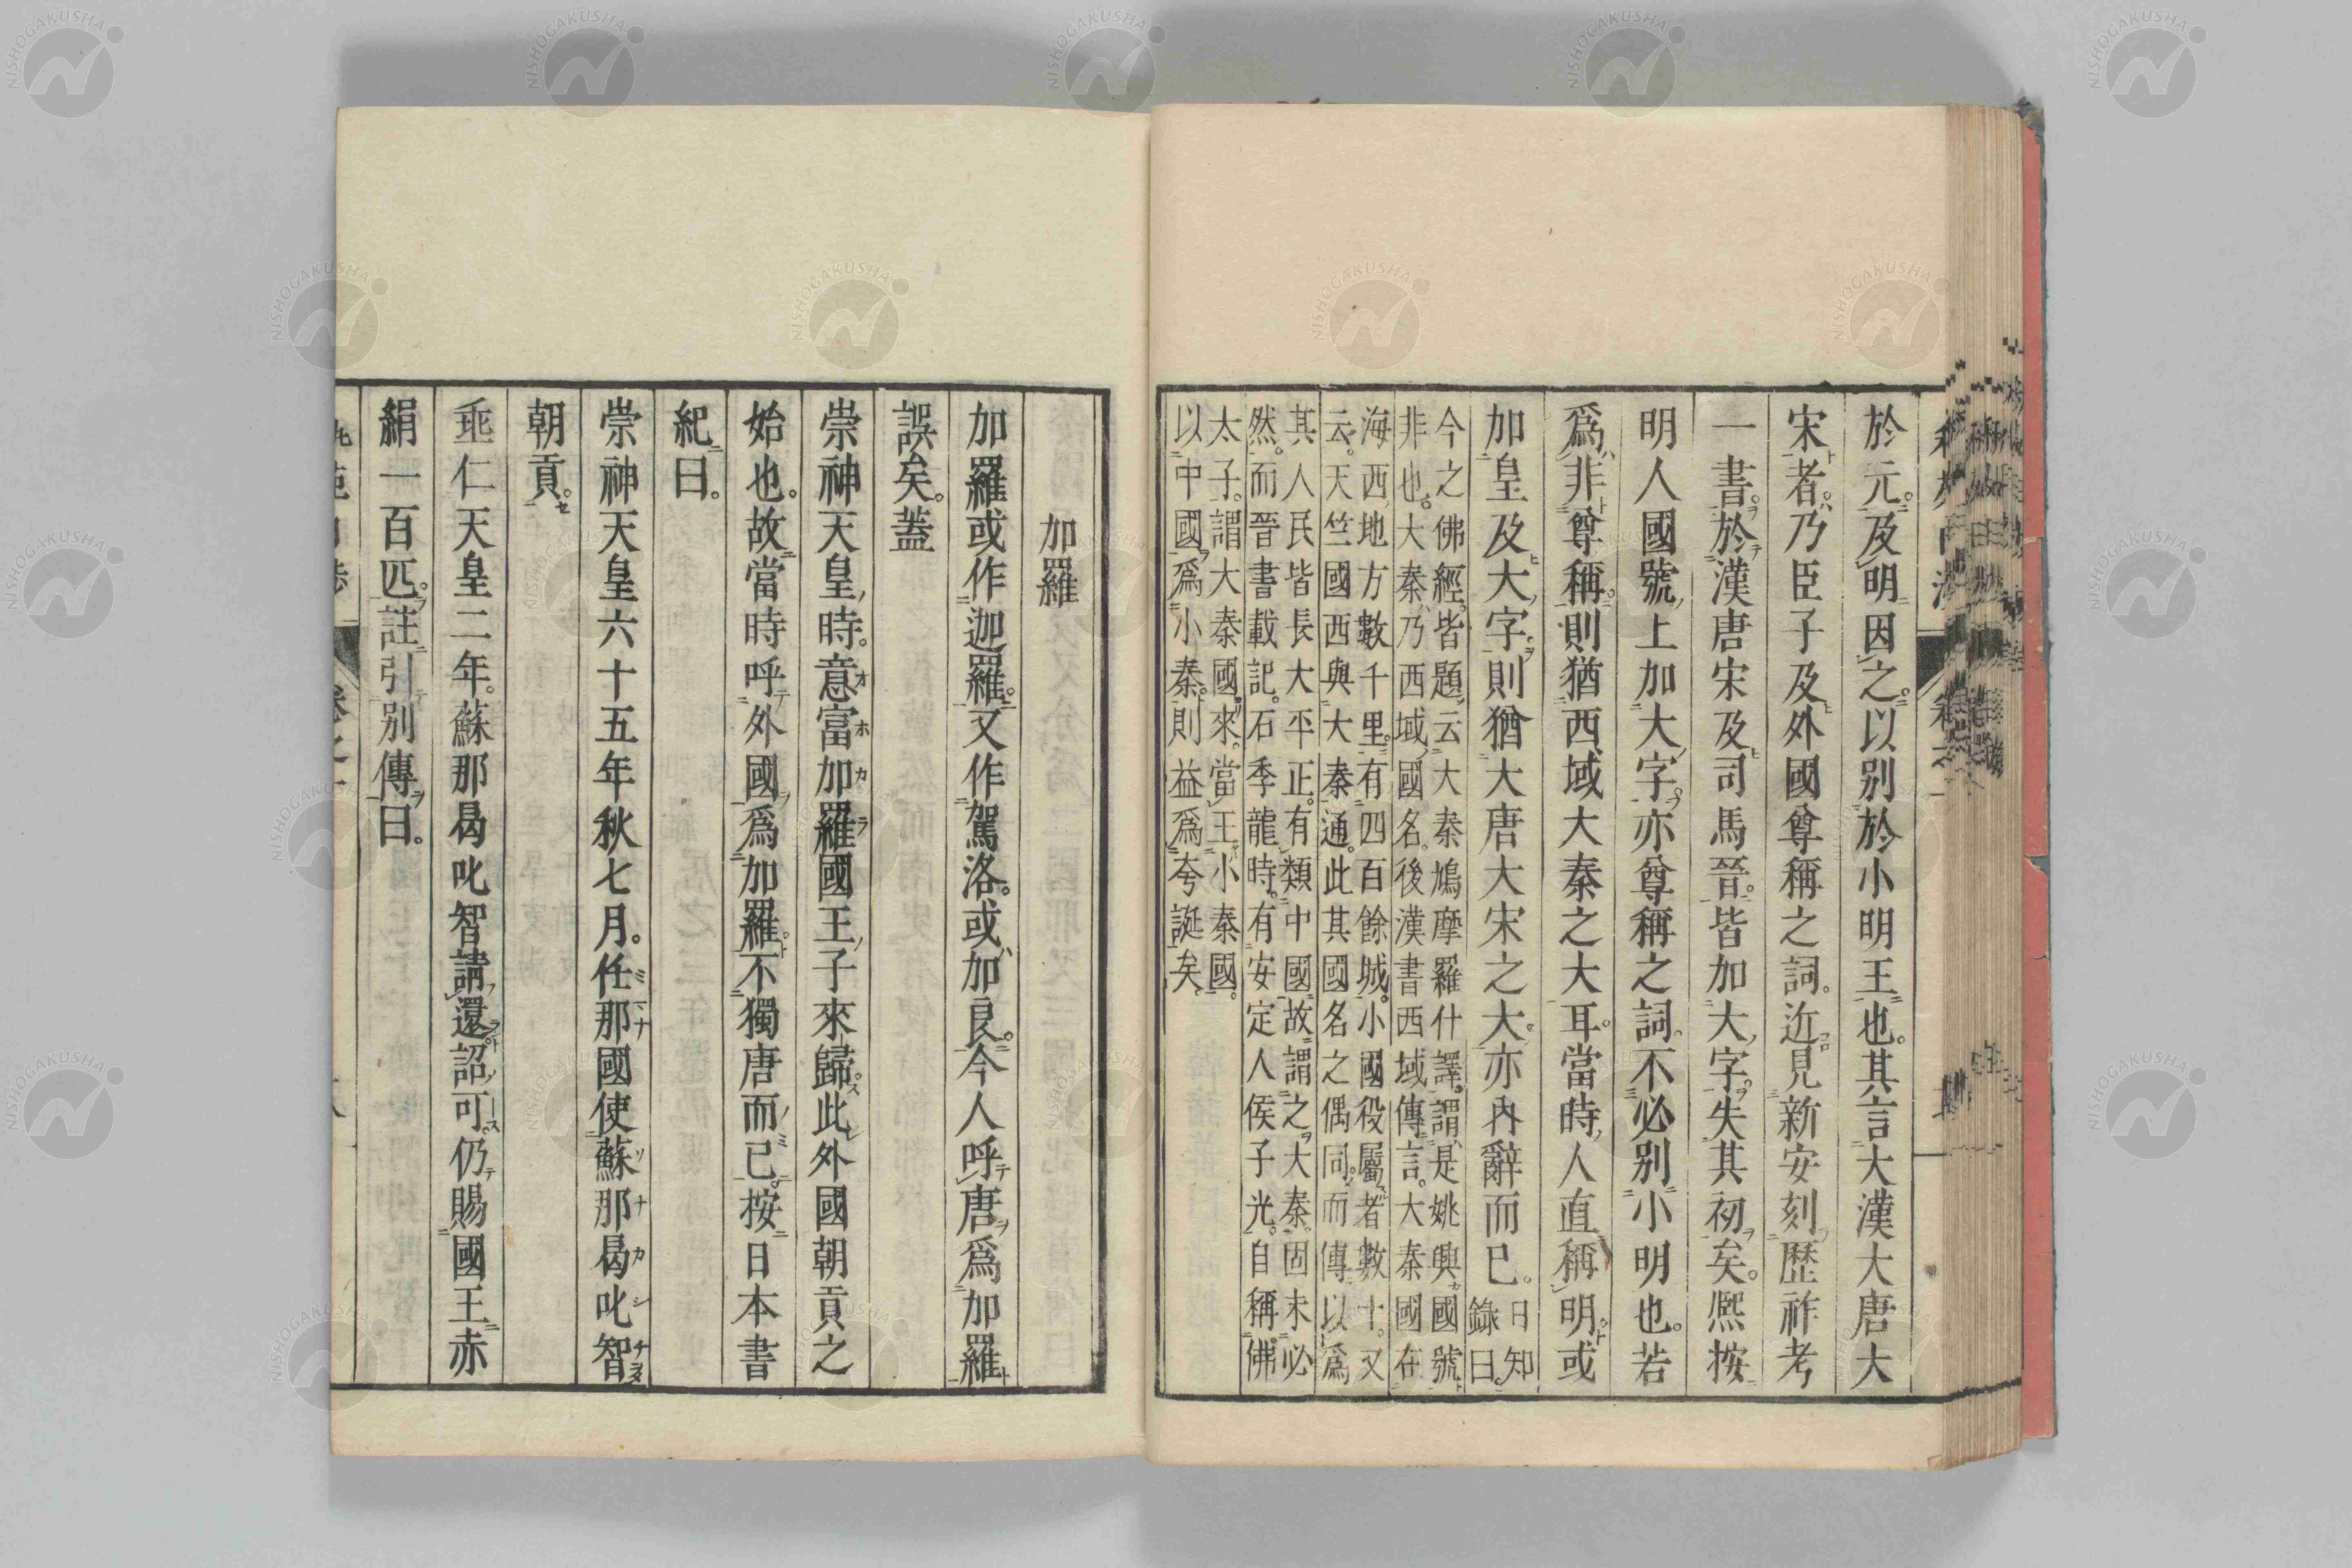 於元。及明因之。以別於小明王也。其言大漢大唐大
宋者。乃臣子及外國尊稱之詞。近見新安刻歷祚考
一書。於漢唐宋及司馬晉。皆加大字。失其初矣。熈按
明人國號上加大字。亦尊稱之詞。不必別小明也。若
爲非尊稱。則猶西域大秦之大耳。當時人直稱明。或
加皇及大字。則猶大唐大宋之大。亦內辭而已。日知
錄曰。
今之佛經。皆題云大秦鳩摩羅什譯。謂是姚興國號。
非也。大秦乃西域國名。後漢書西域傳言。大秦國在
海西。地方數千里。有四百餘城。小國役屬者數十。又
云。天竺國西與大秦通。此其國名之偶同。而傳以爲
其人民皆長大平正。有類中國。故謂之大秦。固未必
然。而晉書載記。石季龍時。有安定人侯子光。自稱佛
太子。謂大秦國來。當王小秦國。
以中國爲小秦。則益爲夸誕矣。
加羅
加羅或作迦羅。又作駕洛。或加良。今人呼唐爲加羅
誤矣。蓋
崇神天皇時。意富加羅國王子來歸。此外國朝貢之
始也。故當時呼外國爲加羅。不獨唐而已。按日本書
紀曰。
崇神天皇六十五年秋七月。任那國使蘇那曷叱智
朝貢。
垂仁天皇二年。蘇那曷叱智請還。詔可。仍賜國王赤
絹一百匹。註引別傳曰。
NISHOGAKUSHA